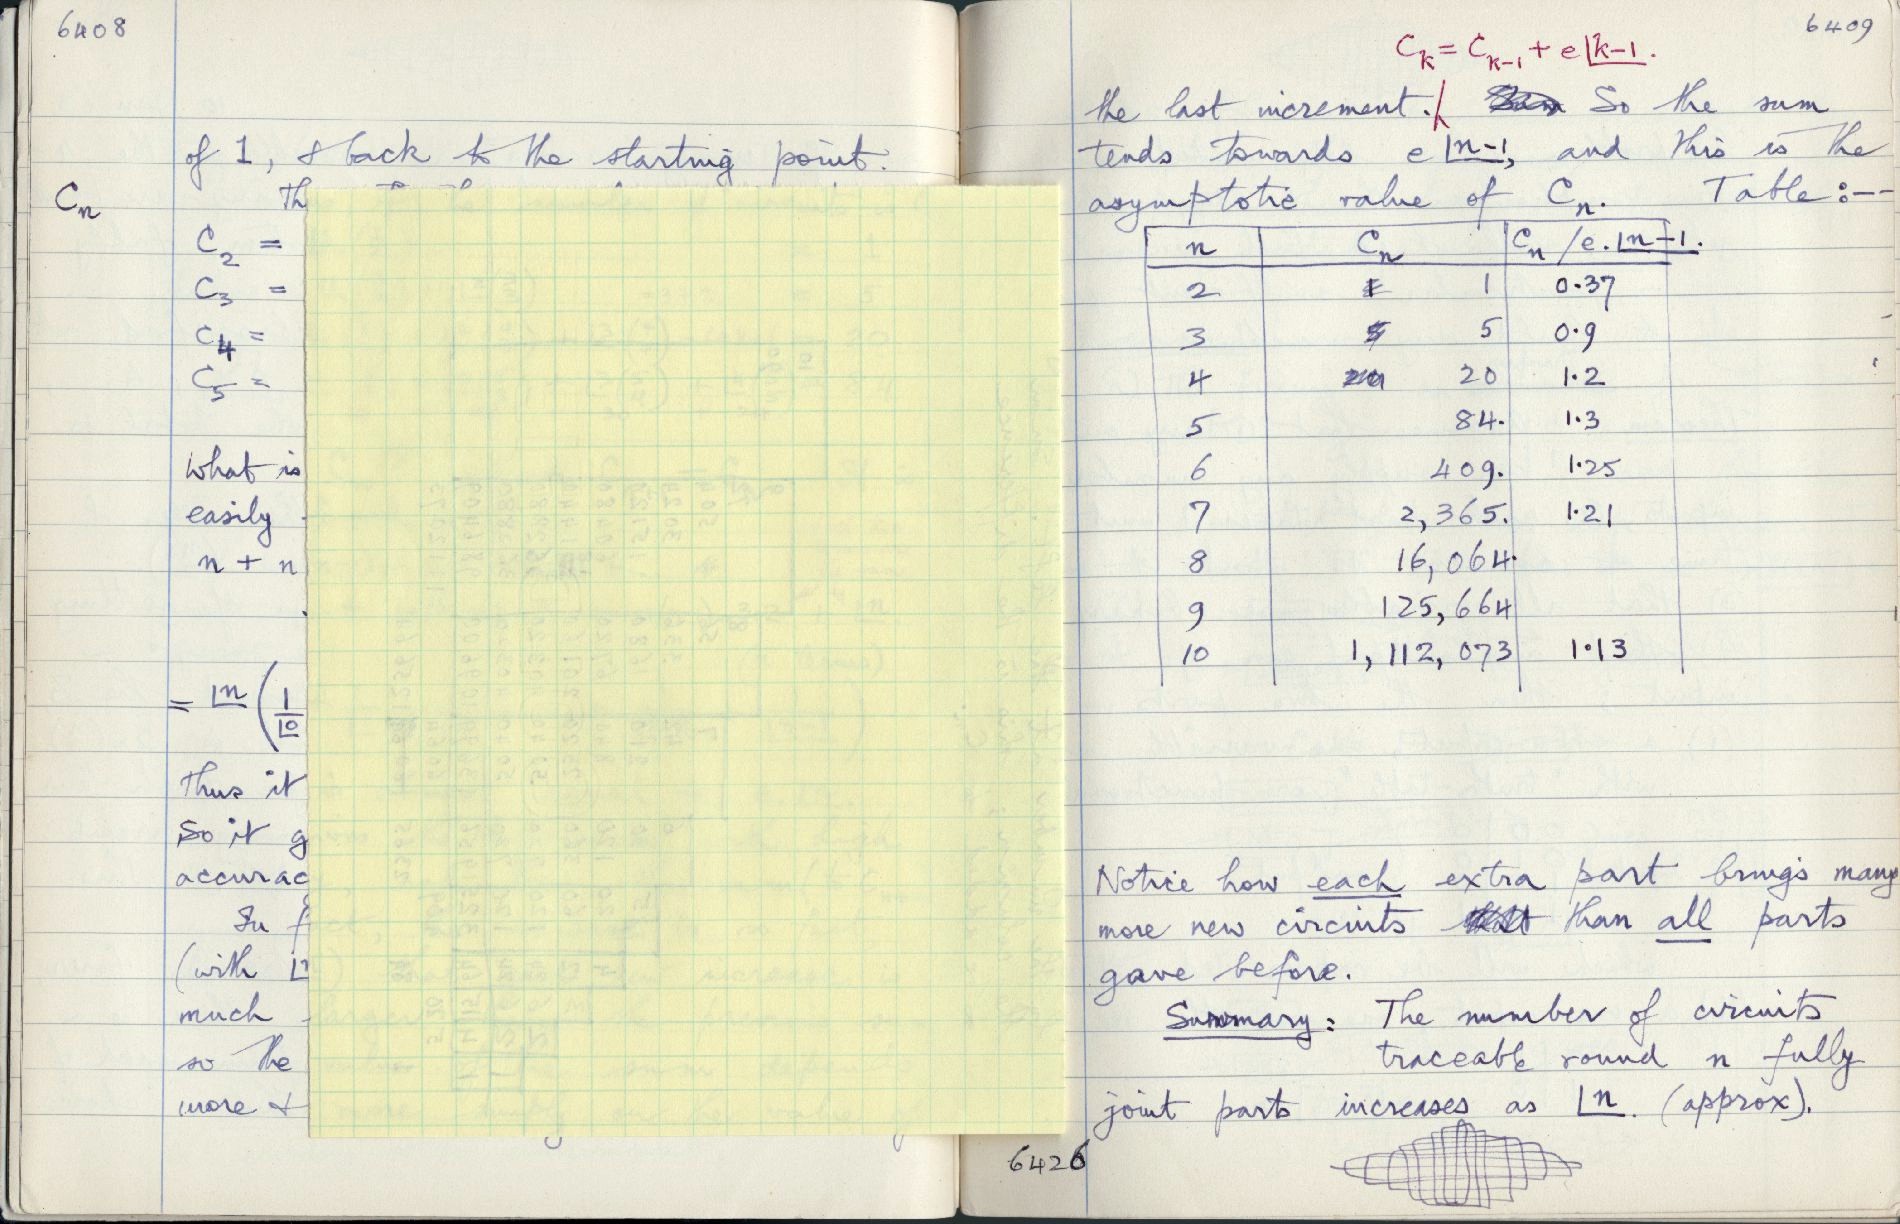 6408
of 1, & back to the starting point.
Cn
Th
C2 =
C3 =
C4 =
C5 =
What is
easily
n + n
= ⌊n (1/⌊0
Thus it
So it g
accurac
In f
(with ⌊
much
so the
more &
6409
Ck = Ck-1 + e⌊k-1.
the last increment. So the sum
tends towards e⌊n-1, and this is the
asymptotic value of Cn. Table:--
n Cn Cn/e.⌊n-1.
2 1 0.37
3 5 0.9
4 20 1.2
5 84. 1.3
6 409. 1.25
7 2,365. 1.21
8 16,064.
9 125,664
10 1,112,073 1.13
Notice how each extra part brings many
more new circuits than all parts
gave before.
Summary: The number of circuits
traceable round n fully
joint parts increases as ⌊n. (approx).
6426